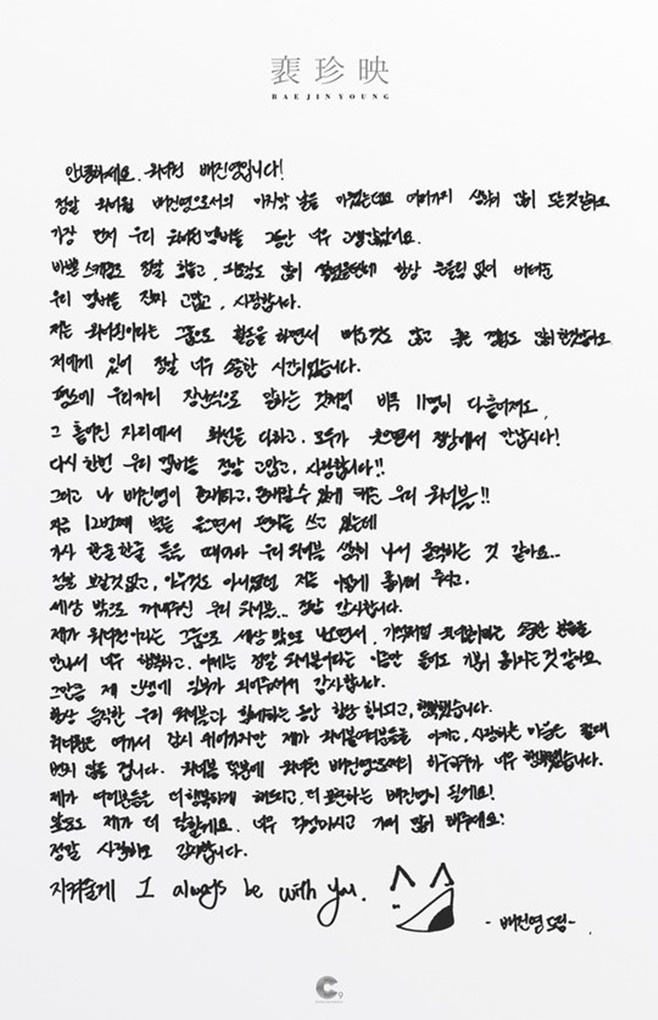 裵珍映
BAEJINYOUNG
안녕하세요. 워너원 배진영입니다!
정말 워너원 배진영으로서의 마지막 날을 마쳤는데요 여러가지 생각이 많이 드는것같아요
가장 먼저 우리 워너원 멤버들 그동안 너무 고생많았어요.
바쁜 스케줄로 정말 힘들고, 많이 항상 흔들림 없이 버텨준
우리 멤버들 진짜 고맙고, 사랑합니다.
저는 워너원이라는 그룹으로 활동을 하면서 배운것도 많고 좋은 경험도 많이한것같아요
저에게 있어 정말 너무 소중한 시간이었습니다.
평소에 우리끼리 장난식으로 말하는 것처럼 비록 11명이 다 흩어져도,
그 흩어진 자리에서 최선을 다하고, 모두가 웃으면서 정상에서 만납시다!
다시 한번 우리 멤버들 정말 고맙고, 사랑합니다!!
그리고 나 배진영이 존재하고, 존재할 수 있게 해준 우리 워너블!!
지금 12번째 별을 들으면서 편지를 쓰고 있는데
가사 한줄한줄 들을 때마다 우리 워너블 생각이 나서 울컥하는 것 같아요..
정말 보잘것없고, 아무것도 아니였던 저를 이렇게 좋아해 주시고,
세상 밖으로 꺼내주신 우리 워너블... 정말 감사합니다.
제가 워너원이라는 그룹으로 세상 밖으로 나오면서, 기적처럼 워너블이라는 소중한 분들을
만나서 너무 행복하고, 이제는 정말 워너블이라는 이름만 들어도 기분이 좋아지는것 같아요
그만큼 제 인생에 일부가 되어주셔서 감사합니다.
항상 든든한 우리 워너블과 함께하는 동안 항상 힘이되고, 행복했습니다.
워너원은 여기서 잠시 쉬어가지만 제가 워너블여러분들을 아끼고, 사랑하는 마음은 절대
변치 않을 겁니다. 워너블 덕분에 워너원 배진영으로서의 하루하루가 너무 행복했습니다.
제가 여러분들을 더 행복하게 해드리고, 더 표현하는 배진영이 될게요!
앞으로 제가 더 잘할게요. 너무 걱정마시고 기대 많이 해주세요!
정말 사랑하고 감사합니다.
지켜줄게 I always be with you.
- 배진영 드림 -
C9